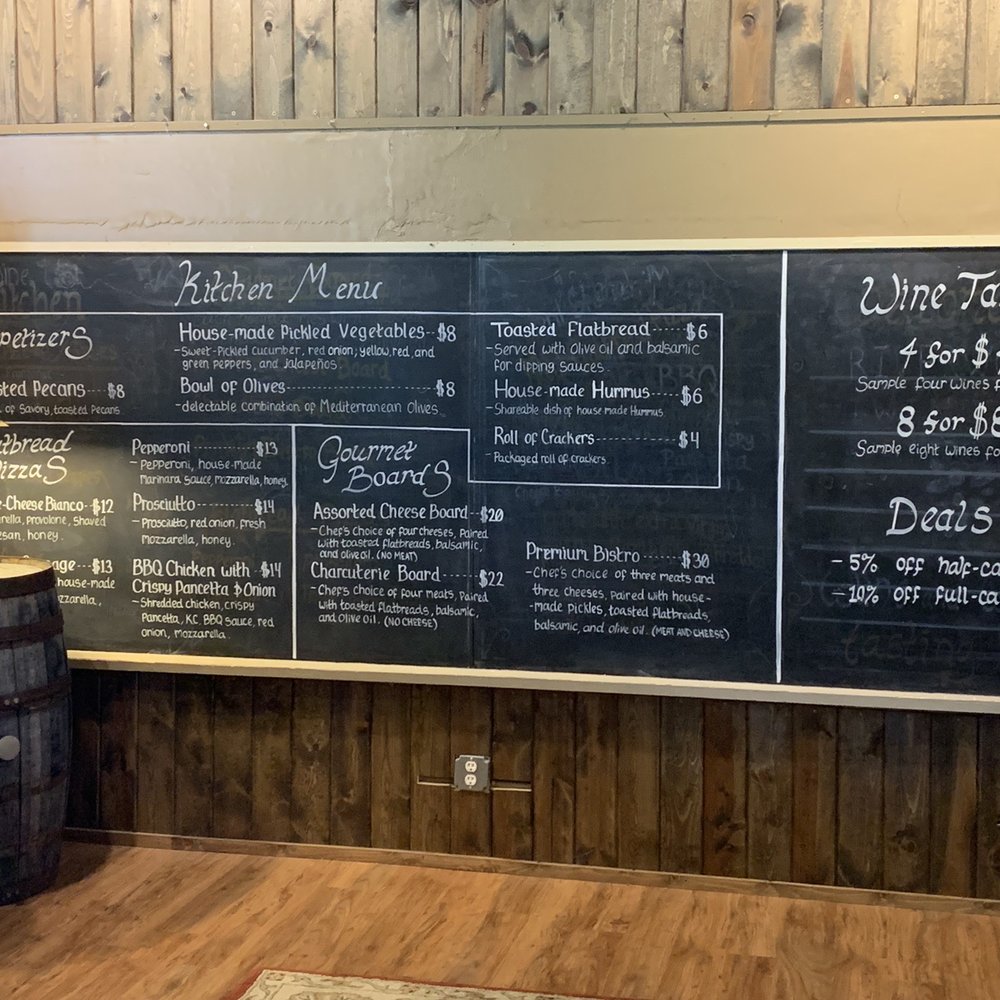 Kitchen Menu
House-made Pickled Vegetables--$8
-Sweet-Pickled cucumber, red onion, yellow, red, and
green peppers, and Jalapeños.
Pecans---$8
of Savory, toasted Pecans
Bowl of Olives--------$8
-delectable combination of Mediterranean Olives.
Toasted Flatbread-----$6
-Served with olive oil and balsamic
for dipping sauces.
House-made Hummus--$6
-Shareable dish of house made Hummus.
Roll of Crackers--------$4
-Packaged roll of crackers.
-Cheese Bianco-$12
provolone, shaved
honey.
--$13
house-made
Pepperoni------$13
-Pepperoni, house-made
Marinara Sauce, mozzarella, honey.
Prosciutto------$14
-Prosciutto, red onion, fresh
mozzarella, honey.
BBQ Chicken with-$14
Crispy Pancetta & Onion
-Shredded chicken, crispy
Pancetta, KC BBQ sauce, red
onion, mozzarella.
Gourmet
Boards
Assorted Cheese Board--$20
-Chef's Choice of four cheeses, Paired
with toasted flatbreads, balsamic,
and olive oil. (NO MEAT)
Charcuterie Board----$22
-Chef's choice of four meats, Paired
with toasted flatbreads, balsamic,
and olive oil. (NO CHEESE)
Premium Bistro------$30
-Chef's choice of three meats and
three cheeses, Paired with house-
-made pickles, toasted flatbreads,
balsamic, and olive oil. (MEAT AND CHEESE)
Wine
4 for $
Sample four wines
8 for $8
Sample eight wines
Deals
-5% off
-10% off